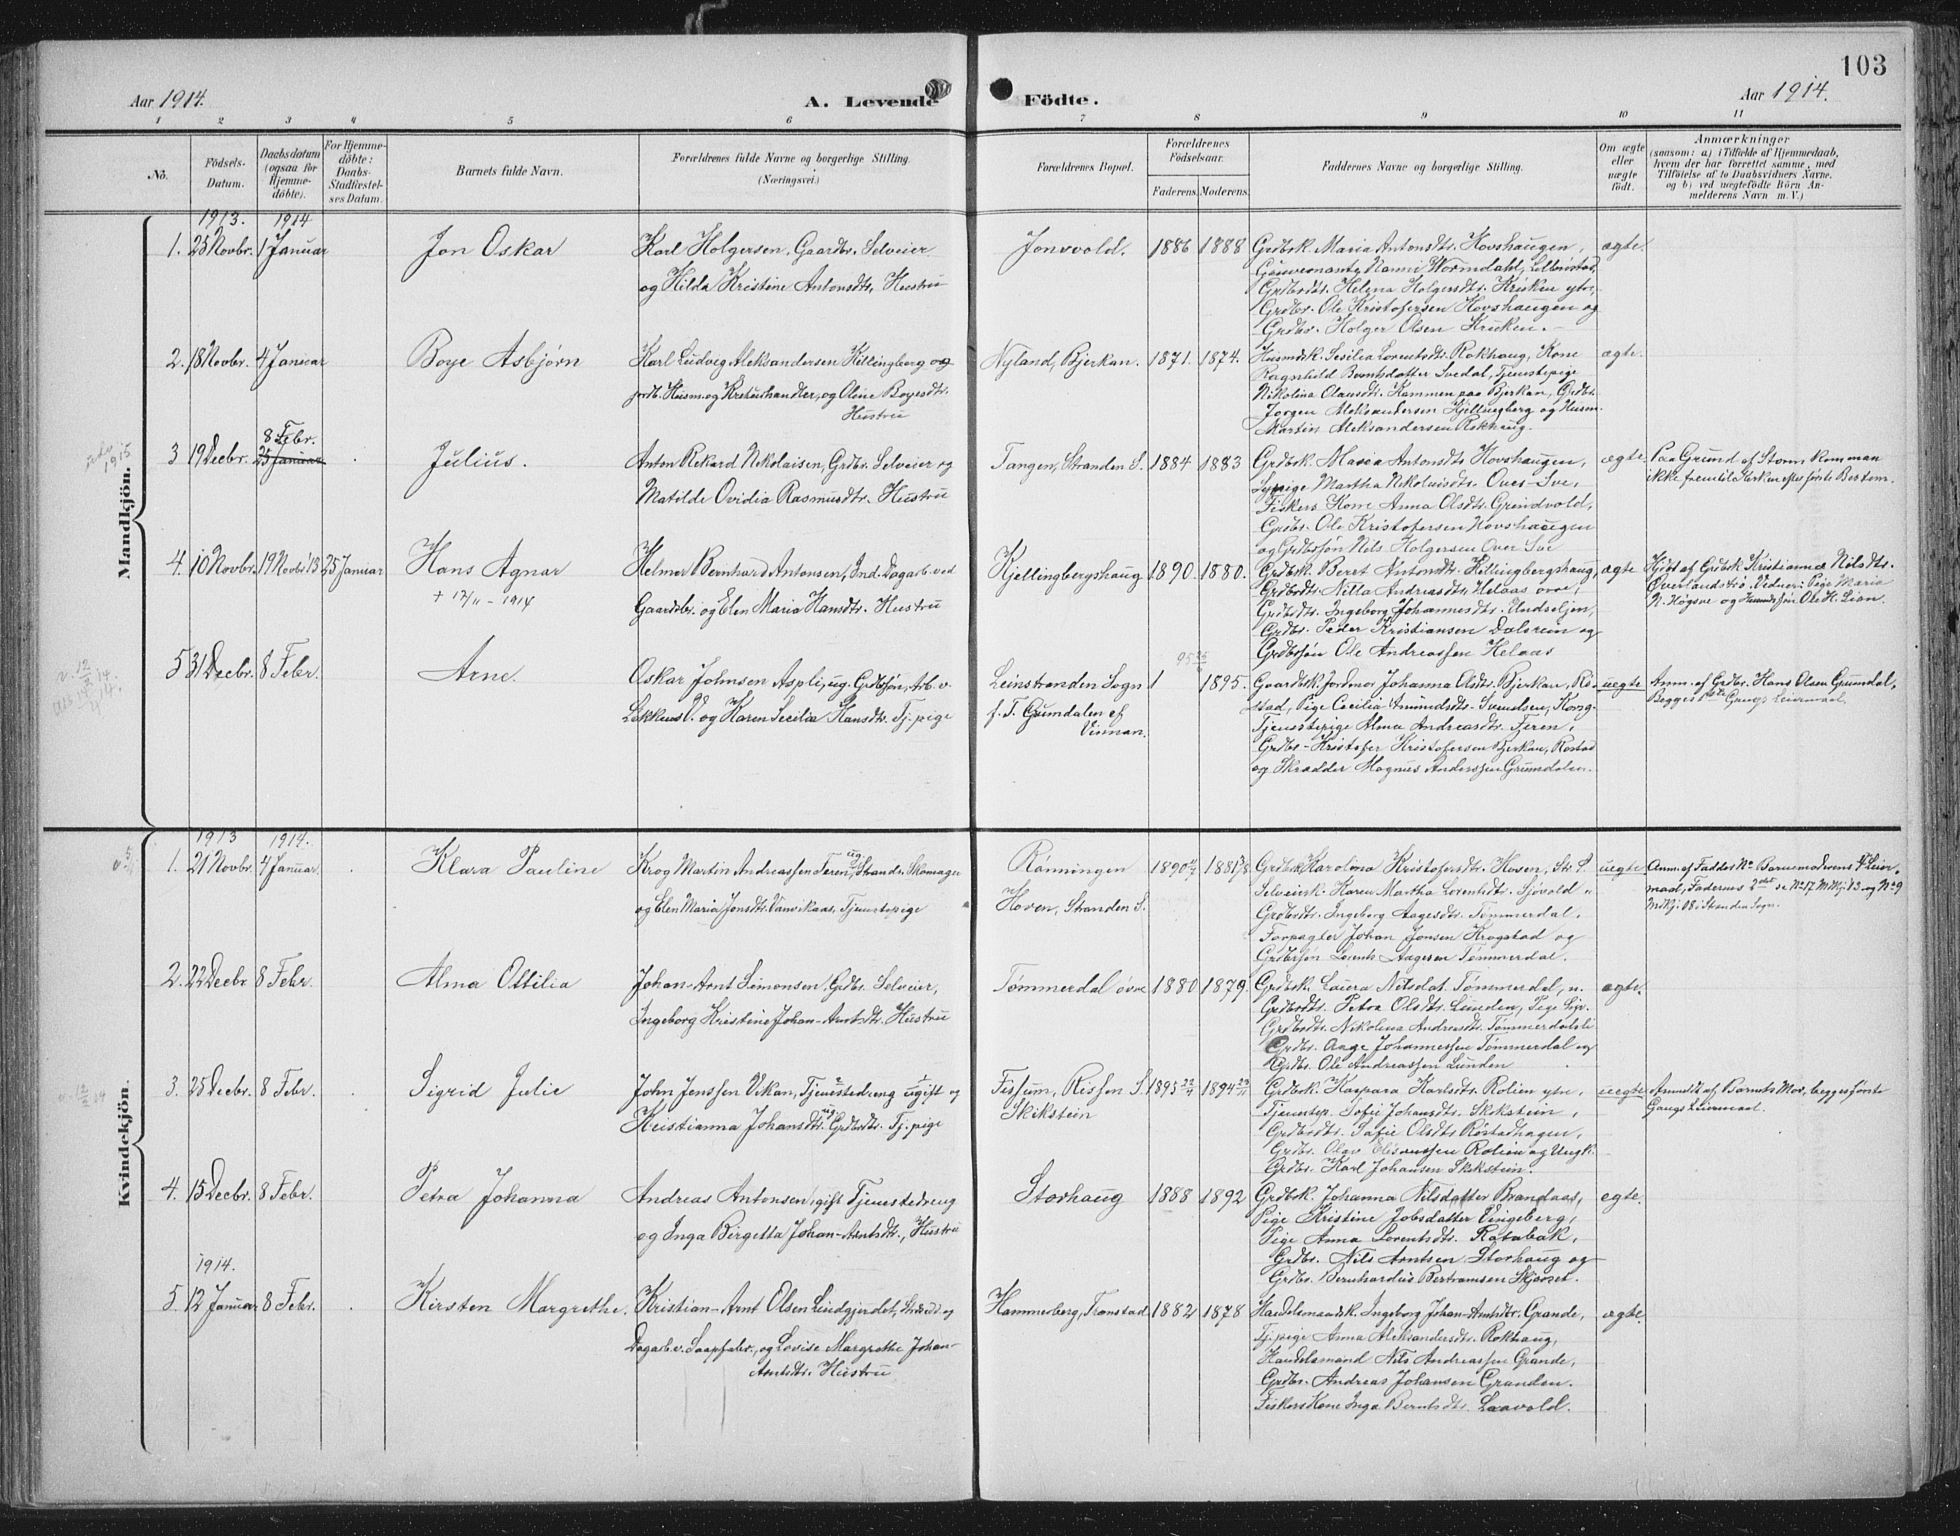 103
Aar 1914.
A. Levende Födte.
Aar 1914.
1 2 3 4 5 6 7 8 9 10 11
No.
Födsels-Datum.
Daabsdatum (ogsaa for Hjemme-döbte).
For Hjemme-döbte: Daabs-Stadfæstel-ses Datum.
Barnets fulde Navn.
Forældrenes fulde Navne og borgerlige Stilling.
(Næringsvei.)
Forældrenes Bopæl.
Forældrenes Födselsaar.
Faderens. Moderens.
Faddernes Navne og borgerlige Stilling.
Om ægte eller uægte födt.
Anmærkninger
(saasom: a) i Tilfælde af Hjemmedaab, hvem der har forrettet samme, med Tilföielse af to Daabsvidners Navne, og b) ved uægtefödte Börn An-melderens Navn m. V.)
Mandkjön.
1913. 1914
1. 23 Novbr. 1 Januar
Jon Oskar
Karl Holgersen, Gaardbr. Selveier
og Hilda Kristine Antonsdtr. Hustru
Jonsvold.
1886 1888
Grdbrk. Maria Antonsdtr. Hovshaugen,
Guvernante Nanni Wormdahl,
Grdbrdtr. Helena Holgersdtr. Kruken ytre,
Grdbr. Ole Kristofersen Hovshaugen og
Grdbr. Holger Olsen Kruken.
ægte.
2. 18 Novbr. 4 Januar
Boye Asbjørn
Karl Ludvig Aleksandersen Killingberg og
jordb. Husm. og Kreturhandler, og Oline Boyesdtr.
Hustru
Nyland, Bjerkan.
1871. 1874.
Husmdsk. Sesilia Lorentsdtr. Rokhaug, Kone
Ragnhild Berntsdatter Svedal, Tjenestepige
Nikolina Olausdtr. Kammen paa Bjerkan, Grdbr.
Jørgen Aleksandersen Kjellingberg og Husm.
Martin Aleksandersen Rokhaug.
ægte.
1915
3 19 Decbr. 8 Febr.
25 Januar
Julius.
Anton Rekard Nikolaisen, Grdbr. Selveier og
Matilde Ovidia Rasmusdtr. Hustru
Tangen, Stranden S.
1884 1883
Grdbrk. Maria Antonsdtr. Hovshaugen,
Sypige Martha Nikolaisdtr. Over-Sve,
Fiskers Kone Anna Olsdtr. Grindvold,
Grdbr. Ole Kristofersen Hovshaugen
og Grdbrsøn Nils Holgersen Over Sve
ægte
Paa Grund af Storm kom man
ikke frem til Kirken efter første Bestem.
4. 10 Novbr. 19 Novbr 13 25 Januar
Hans Agnar
+ 12/11 - 1914
Helmer Bernhard Antonsen, Ind. Dagarb. ved
Gaardsbr. og Elen Maria Hansdtr. Hustru
Kjellingbergshaug
1890. 1880.
Grdbrk. Beret Antonsdtr. Killingbergshaug,
Grdbrdtr. Nilla Andreasdtr. Helaas øvre,
Grdbrdtr. Ingeborg Johannesdtr. Undseljen,
Grdbr. Peder Kristiansen Dalsrein og
Grdbrsøn Ole Andreassen Helaas
ægte
Hjdøt af Grdbrk Kristianna Nilsdtr.
Øverlandstrø. Vidner: Pige Maria
N. Høgsve og Husmdssøn Ole H. Lian.
5 31 Decbr. 8 Febr.
Arne
Oskar Johnsen Aspli, ug. Grdbrsøn, Arb. v.
Løkkens V. og Karen Secilia Hansdtr. Tj. pige
Leinstranden Sogn
f. T. Grumdalen af
Vinnan.
1895.
Gaardbrk. Jordmor Johanna Olsdtr. Bjerkan, Rø-
stad, Pige Cecilia Amundsdtr. Svendsen,
Tjenestepige Alma Andreasdtr. Feren,
Grdbr. Kristofer Kristofersen Bjerkan, Røstad
og Skrædder Magnus Anderssen Grumdalen.
uegte
Anm. af Grdbr. Hans Olsen Grumdal,
Begges 1ste Gangs Leiermaal.
Kvindekjön.
1913 1914.
1. 21 Novbr. 4 Januar.
Klara Pauline
Krog Martin Andreassen Feren, ug. Strands. Skomager
og Elen Maria Jonsdtr. Vanvikaas, Tjenestepige
Rønningen
Hoven, Stranden S.
1890 1881
Grdbrk Karolina Kristofersdtr. Hosen, Str. S.
Selveiersk. Karen Martha Lorentsdtr. Sjøvold
Grdbrdtr. Ingeborg Aagesdtr. Tømmerdal.
Forpagter Johan Jonsen Krogstad og
Grdbrsøn Lorents Aagesen Tømmerdal.
uegte
Anm. af Fadder No Barnemoderens 4de Leier-
maal, Faderens 2det se No 17 Mkj. 13 og No 9
Mdkj. 08 i Stranden Sogn.
2. 22 Decbr 8 Febr.
Alma Ottilia
Johan-Arnt Simonsen, Grdbr. Selveier,
Ingeborg Kristine Johan-Arntsdtr. Hustru
Tømmerdal øvre
1880 1879.
Grdbrk. Laura Nilsdat. Tømmerdal, n.
Grdbrdtr. Petra Olsdtr. Lunden, Pige
Grdbrdtr. Nikolina Andreasdtr. Tømmerdalsli
Grdbr. Aage Johannessen Tømmerdal og
Grdbr. Ole Andreassen Lunden
ægte.
3. 25 Decbr. 8 Febr.
Sigrid Julie
John Jenssen Vikan, Tjenestedreng ugift og
Kristianna Johansdtr. ug. Grdbrdtr. Tj. pige
Fissum, Rissen S.
Skikstein
1895 22/4 1894
Grdbrk. Kaspara Karlsdtr. Rolien ytre,
Tjenestep. Sofie Johansdtr. Skikstein,
Grdbrdtr. Sofie Olsdtr. Røstadhagen,
Grdbr. Olav Eliseussen Rolien og Ungk.
Grdbr. Karl Johansen Skikstein.
uegte
Anmeldt af Barnets Mor, begges første
Gangs Leiermaal.
4. 15 Decbr. 8 Febr.
Petra Johanna
Andreas Antonsen, gift Tjenestedreng
og Inga Birgetta Johan-Arntsdtr., Hustru
Storhaug
1888 1892
Grdbrk. Johanna Nilsdatter Brandaas,
Pige Kristine Jobsdatter Vingeberg,
Pige Anna Lorentsdtr. Ratabak,
Grdbr. Nils Arntsen Storhaug og
Grdbr. Bernhardus Bertramsen Skjærset.
egte.
1914.
5. 12 Januar 8 Febr.
Kirsten Margrethe.
Kristian-Arnt Olsen Lindgjerdet, og
Dagarb. v. Saapfabr., og Lovise Margrethe Johan-
Arntsdtr. Hustru
Hammerberg, Tronstad
1882 1878
Handelsmandsk. Ingeborg Johan-Arntsdtr. Grande,
Tj. pige Anna Aleksandersdtr. Rokhaug,
Handelsmand Nils Andreassen Grande,
Grdbr. Andreas Johansen Granden.
Fiskers Kone Inga Berntsdtr. Laavold.
ægte.